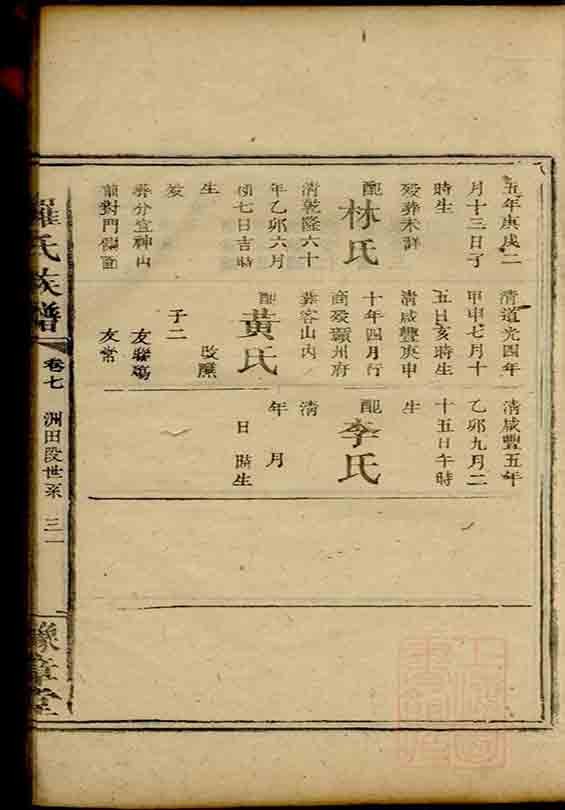 五年庚戌二
月十三日子
時生
歿葬未詳
配林氏
清乾隆六十
年乙卯六月
初七日吉時
生
歿
葬分宜神山
前對門
清道光四年
甲申七月十
五日亥時生
清咸豐庚申
十年四月行
商歿贛州府
葬客山内
配黃氏
改醮
子二
友聯殤
友常
清咸豐五年
乙卯九月二
十五日午時
生
配李氏
清
年 月
日 時生
羅氏族譜
卷七 洲田段世系
豫章堂